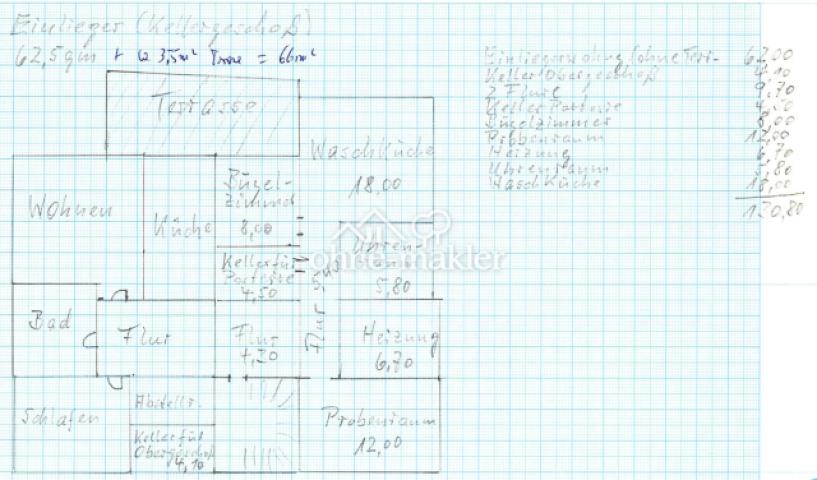 Einlieger (Kellergeschoß)
62,5qm + 3,5m² = 66m²
Einliegerwohnung (ohne Terr- 62,00
Keller Obergeschoß 4,10
2 Flure 9,70
Keller Parterre 4,50
Bügelzimmer 8,00
Probenraum 12,00
Heizung 6,70
Uhrenraum 5,80
Waschküche 18,00
130,80
Terrasse
Waschküche
18,00
Wohnen
Küche
Bügel-
zimmer
8,00
Uhren-
raum
5,80
ohne-makler
Keller für
Parterre
4,50
Bad
Flur
Flur
4,20
Flur
Heizung
6,70
Schlafen
Abstellr.
Keller für
Obergeschoß
4,10
Probenraum
12,00